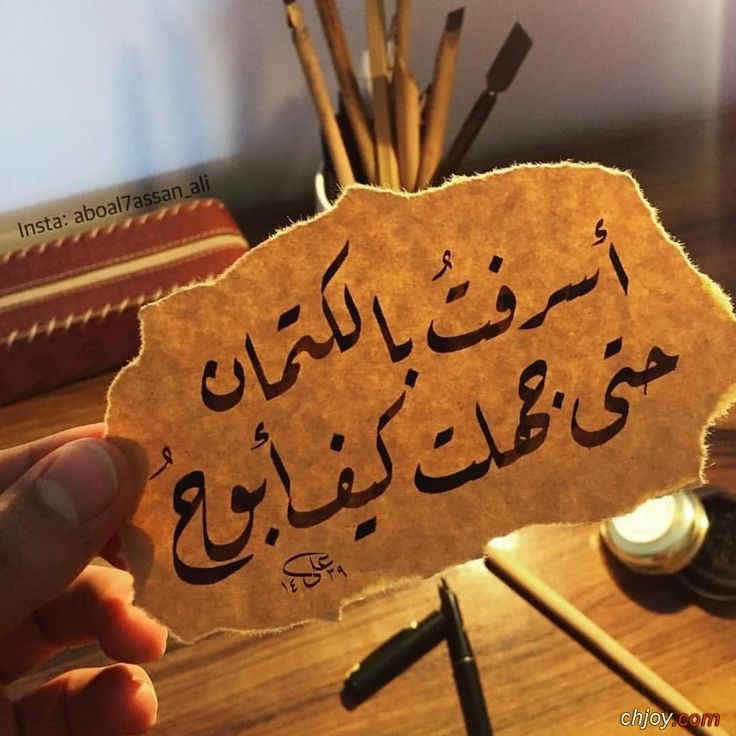 Insta: aboal7assan_ali
أسرفتُ بالكتمان
حتى جهلت كيف أبوحُ
علي
١٤٣٩
chjoy.com